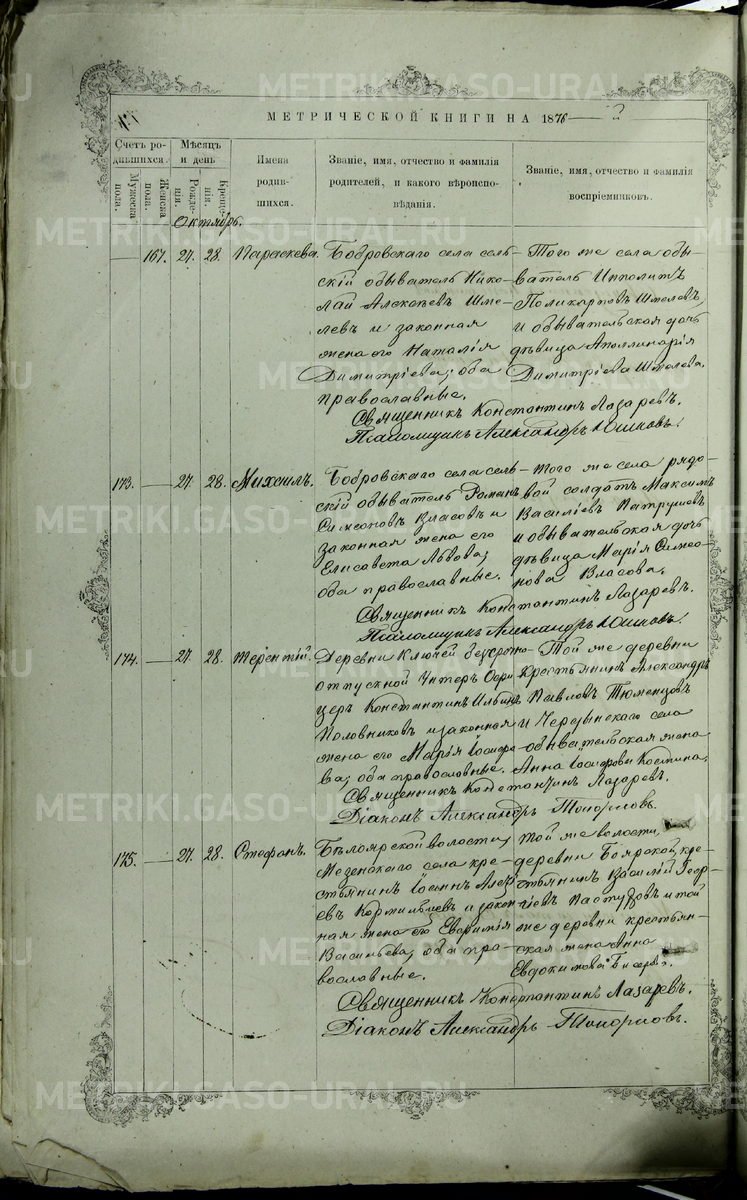 МЕТРИЧЕСКОЙ КНИГИ НА 1876
Счетъ родившихся.
Мѣсяцъ и день
Имена родившихся.
Званіе, имя, отчество и фамилія родителей, и какого вѣроисповѣданія.
Званіе, имя, отчество и фамилія воспріемниковъ.
Мужеска пола.
Женска пола.
Рожденія.
Крещенія.
Октябрь.
167. 27. 28. Параскева.
Бобровскаго села сель-
скій обыватель Нико-
лай Алексѣевъ Шме-
левъ и законная
жена его Наталія
Димитріева; оба
православные.
Того же села обы-
ватель Ипполитъ
Поликарповъ Шмелевъ,
и обывательская дочь
дѣвица Аполлинарія
Димитріева Шмелева.
Священникъ Константинъ Лазаревъ.
Псаломщикъ Александръ Юшковъ.
173. 27. 28. Михаилъ.
Бобровскаго села сель-
скій обыватель Романъ
Симеоновъ Власовъ и
законная жена его
Елисавета Львова;
оба православные.
Того же села рядо-
вой солдатъ Максимъ
Василіевъ Патрушевъ
и обывательская дочь
дѣвица Марія Симео-
нова Власова.
Священникъ Константинъ Лазаревъ.
Псаломщикъ Александръ Юшковъ.
174. 27. 28. Терентій.
Деревни Ключей безсрочно-
отпускной Унтеръ Офи-
церъ Константинъ Ильинъ
Половниковъ и законная
жена его Марія Іосифо-
ва; оба православные.
Той же деревни
крестьянинъ Александръ
Павловъ Тюменцовъ
и села
обывательская жена
Анна Іосифова Костина.
Священникъ Константинъ Лазаревъ.
Діаконъ Александръ Топорковъ.
175. 27. 28. Стефанъ.
Бѣлоярской волости,
Мезенскаго села кре-
стьянинъ Іоаннъ Алексѣ-
евъ Кормильцевъ и закон-
ная жена его Евфимія
Васильева; оба пра-
вославные.
Той же волости,
деревни Боярской, кре-
стьянинъ Василій Геор-
гіевъ Пастуховъ и той
же деревни крестьян-
ская жена Анна
Евдокимова
Священникъ Константинъ Лазаревъ.
Діаконъ Александръ Топорковъ.
METRIKI.GASO-URAL.RU